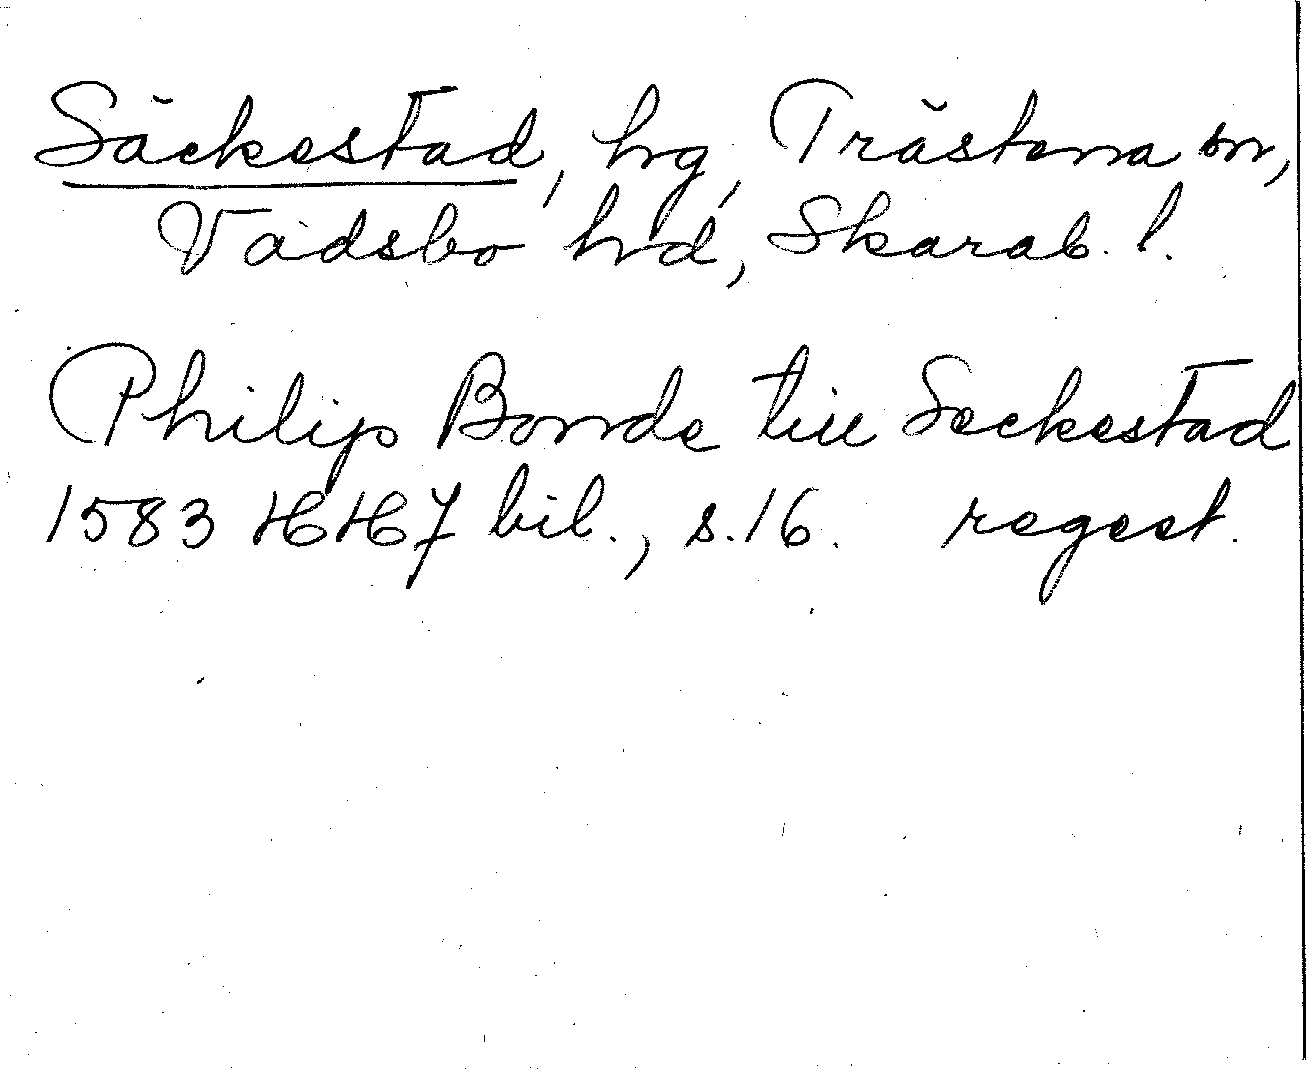 Säckestad, hg, Trästena sn,
Vadsbo hd, Skarab. l.
Philip Bonde till Seckestad
1583 HH 7 bil., s. 16. regest.